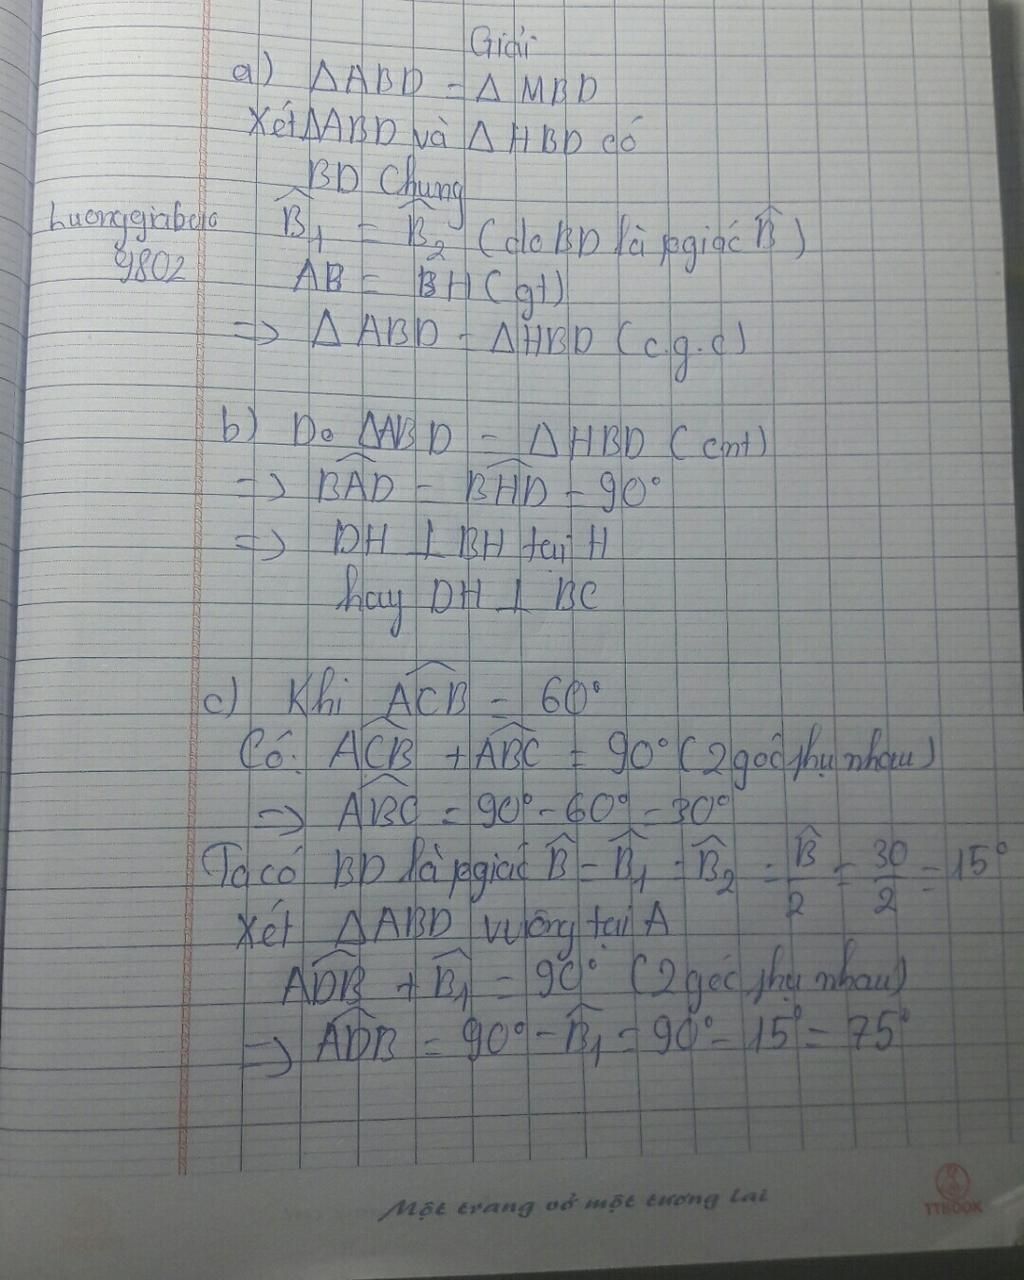 Giải
a) ΔABD = Δ MBD
Xét ΔABD và Δ HBD có
BD Chung
luonggiabao
9802
B̂₁ = B̂₂ (do BD là pgiác B̂)
AB = BH (gt)
=> Δ ABD = ΔHBD (c.g.c)
b) Do ΔABD = ΔHBD (cmt)
=> BAD = BHD = 90°
=> DH ⊥ BH tại H
hay DH ⊥ BC
c) Khi ACB = 60°
Có: ACB + ABC = 90° (2 góc phụ nhau)
=> ABC = 90° - 60° = 30°
Ta có BD là pgiác B̂ = B̂₁ = B̂₂ = B̂/2 = 30/2 = 15°
Xét ΔABD vuông tại A
ADB + B̂₁ = 90° (2 góc phụ nhau)
=> ADB = 90° - B̂₁ = 90° - 15° = 75°
Một trang vở một tương lai
TTBOOK